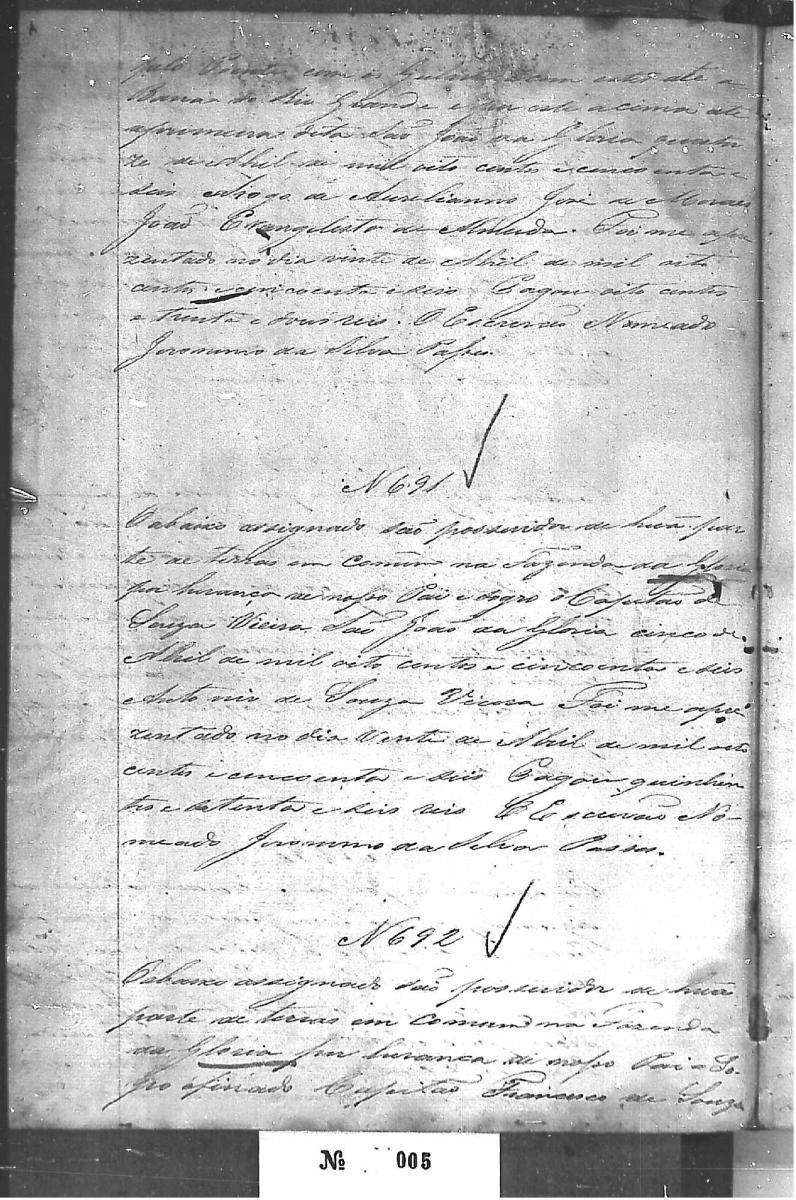 pelo com a com este até a
Barra do Rio Grande e por este acima até
a primeira dita São João da Gloria quator
ze de Abril de mil oito centos e cincoenta e
seis a rogo de Aurelianno José de Moraes
João Evangelista de Almeida. Foi me apre
zentado no dia vinte de Abril de mil oito
centos e cincoenta e seis Pagou oito centos
e trinta e dous reis. O Escrivão Nomeado
Jeronimo da Silva Passos.
N 691
O abaixo assignado são possuidor de huã par
te de terras em comum na Fazenda da Gloria
por herança de nosso Pai e Sogro o Capitão de
Souza Vieira. São João da Gloria cinco de
Abril de mil oito centos e cincoenta e seis
Antonio de Souza Vieira Foi me apre
zentado no dia Vente de Abril de mil oito
centos e cincoenta e seis Pagou quinhen
tos e setenta e seis reis O Escrivão No-
meado Jeronimo da Silva Passos.
N 692
O abaixo assignado são possuidor de huã
parte de terras em Comum na Fazenda
da Gloria por heranca de nosso Pai e So
gro o finado Capitão Francisco de Souza
Nº 005